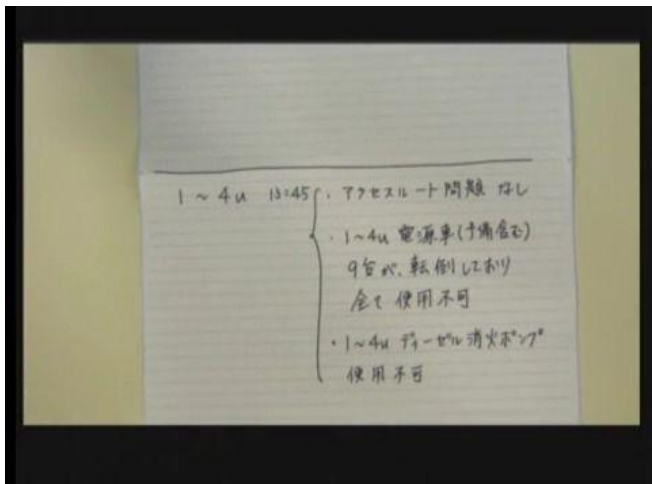 1～4u 13:45 ・アクセスルート問題なし
・1～4u 電源車(予備含む)
9台が、転倒しており
全て使用不可
・1～4u ディーゼル消火ポンプ
使用不可